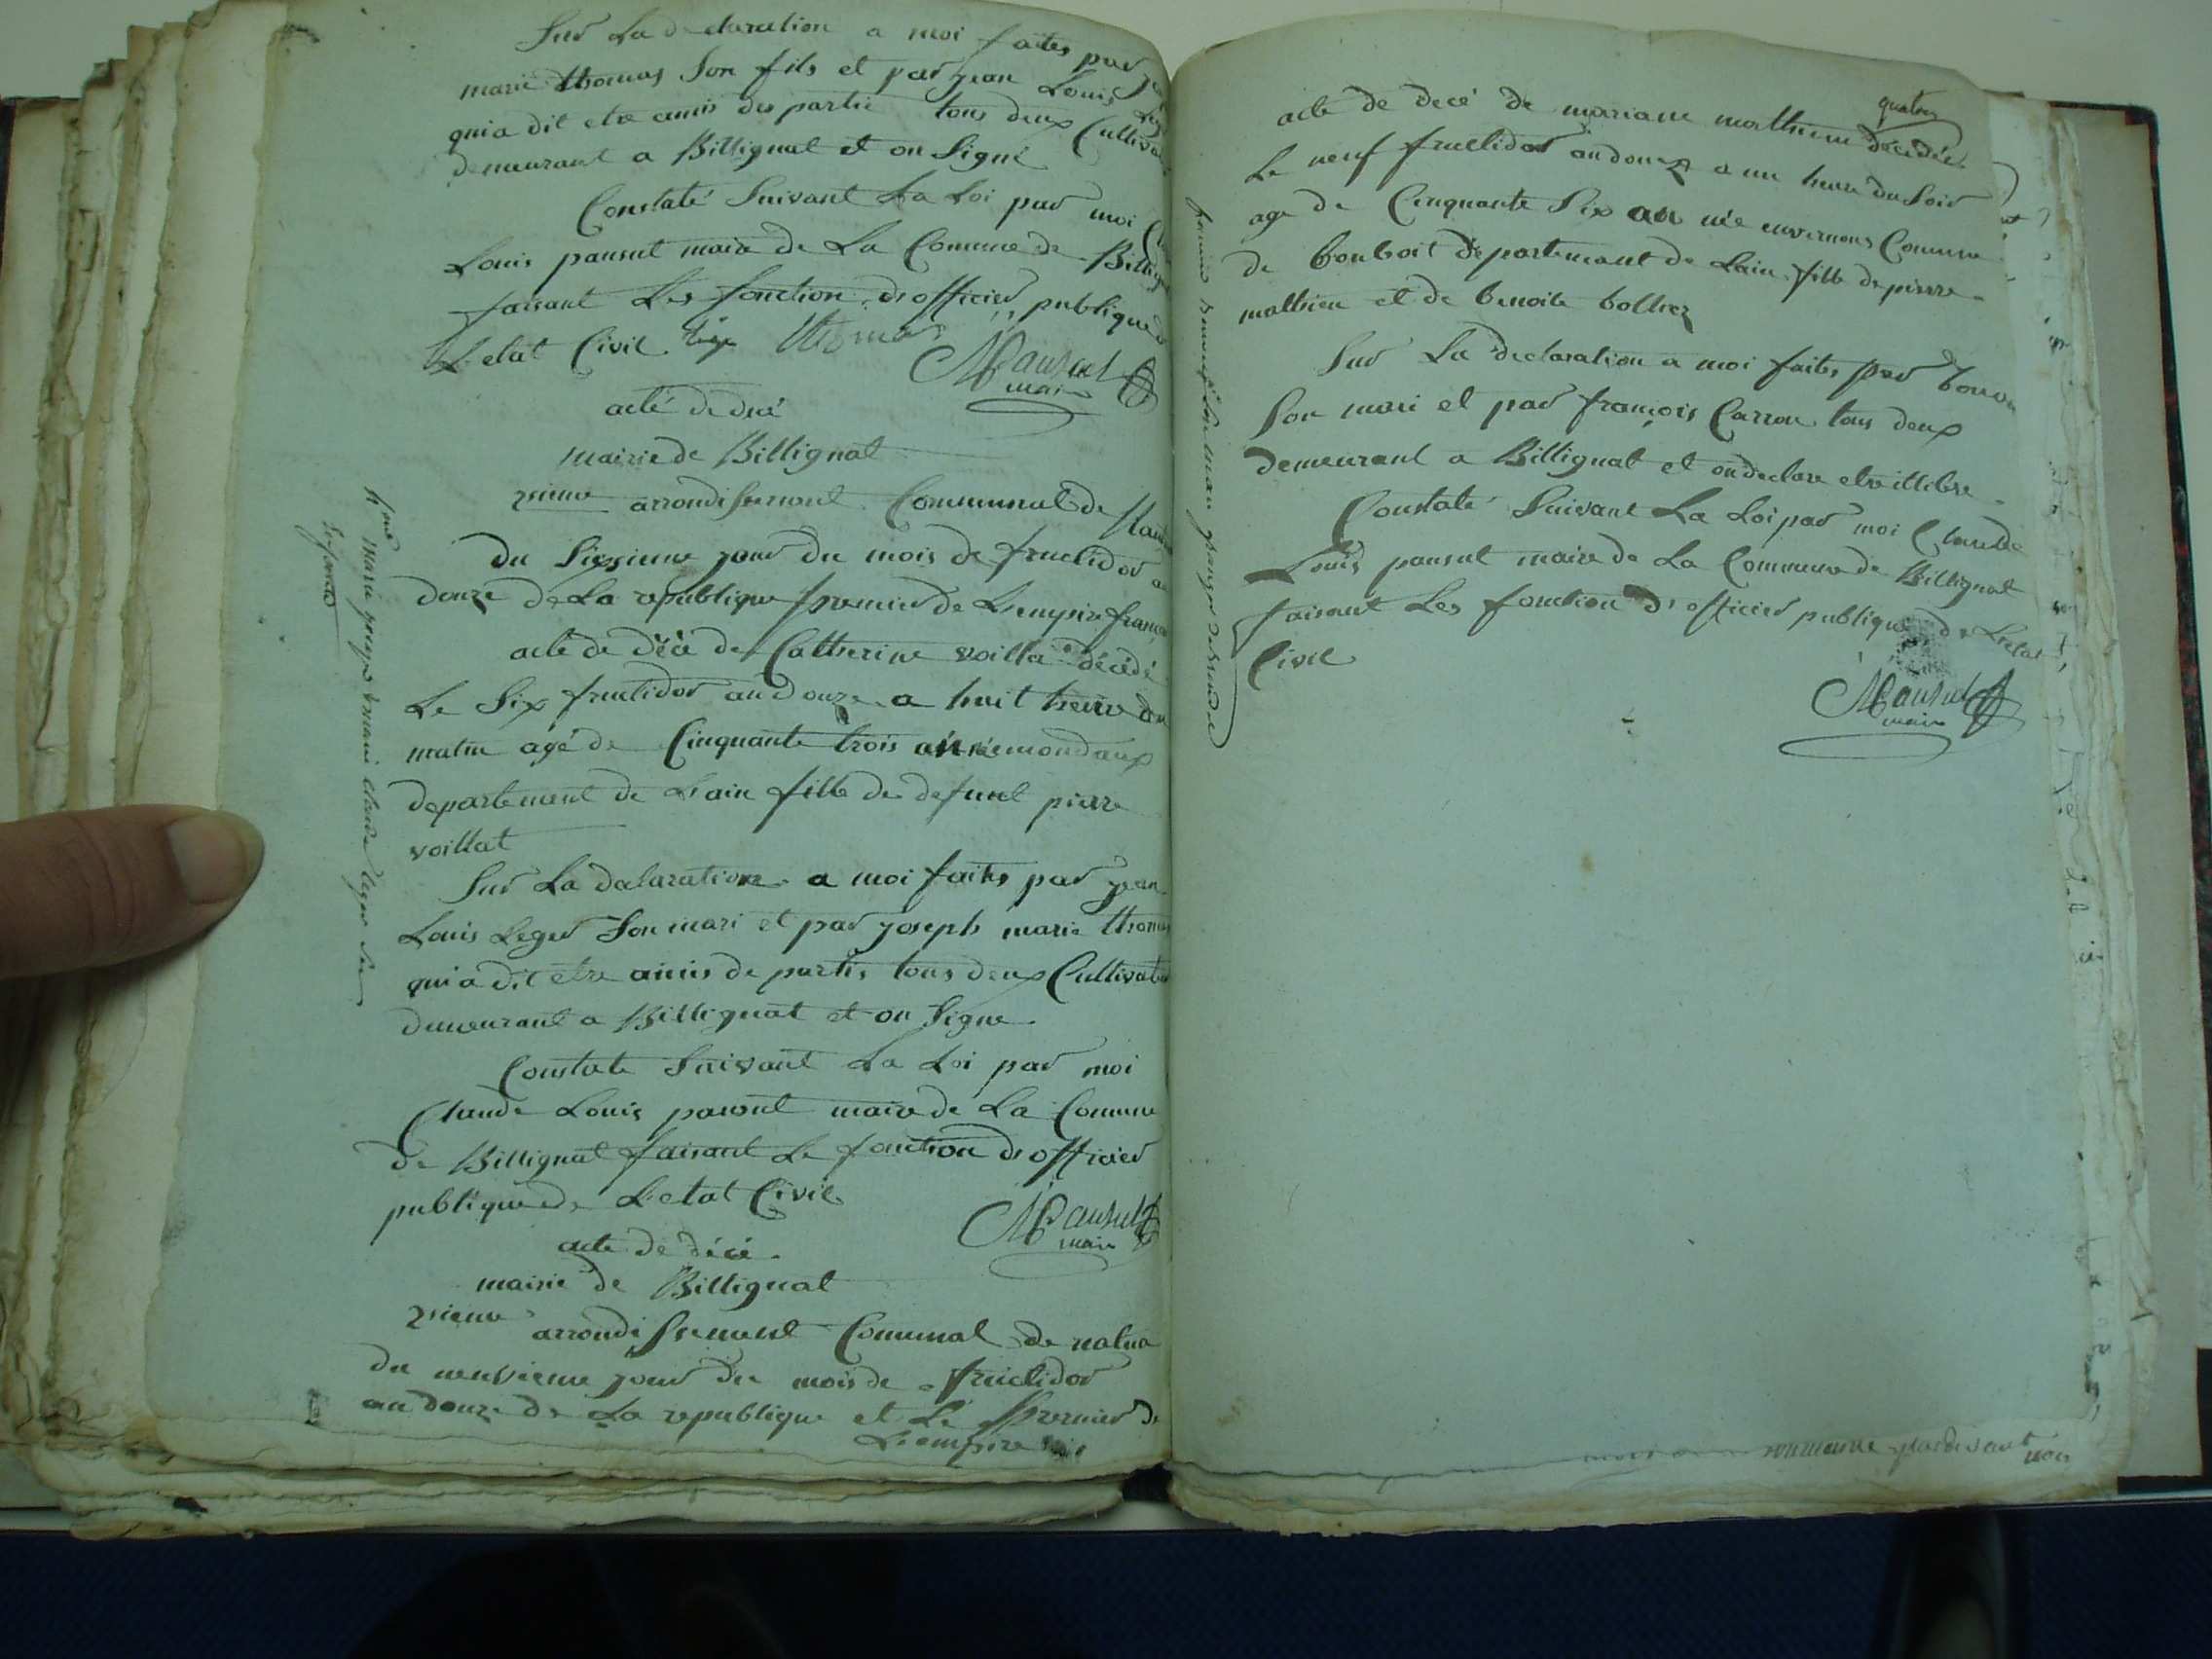 Sur La declaration a moi faites par
marie thomas Son fils et par jean Louis
qui a dit etre amis des partie tous deux Cultiva
demeurant a Billignat et on Signé
Constaté Suivant La Loi par moi
Louis pansut maire de La Comune de Billig
faisant Les fonction d'officier publique
L'etat Civil
Mansut
maire
acté de decé
mairie de Billignat
2sieme arrondissement Communal de
du Sixsieme jour du mois de fructidor
douze de La republique premier de L'empire
acte de décé de Catherine voilla décédé
Le Six fructidor an douze a huit heure du
matin agé de Cinquante trois an née
departement de L'ain fille de defunt pierre
voillat
Sur La dalaration a moi faites par jean
Louis Leger Son mari et par joseph marie thomas
qui a dit etre amis de partis tous deux Cultivat
demeurant a Billignat et on Signe
Constate Suivant La Loi par moi
Claude Louis pansut maire de La Comune
de Billignat faisant Le fonction d'officier
publique de L'etat Civil
Mansut
maire
acte de décé
mairie de Billignat
2sieme arrondissement Comunal de natua
du neuvieme jour du mois de fructidor
an douze de La republique et Le premier de
L'empire
quatre
acte de decé de mariane mathieu décedée
Le neuf fructidor an douze a un heure du Soir
age de Cinquante Six an née Comune
de departemant de Lain fille de pierre
mathieu et de benoite
Sur La declaration a moi faites par
Son mari et par françois Carron tous deux
demeurant a Billignat et on declare etre
Constaté Suivant La Loi par moi Claude
Louis pansut maire de La Commune de Billignat
faisant Les fonction d'officier publique de L'etat
Civil
Mansut
maire